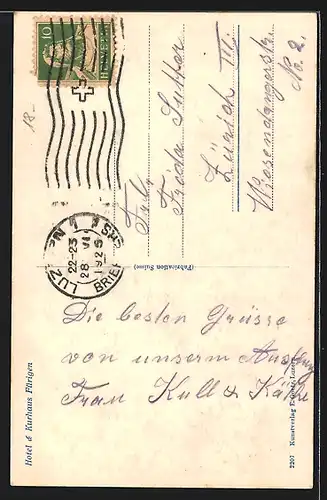 Hotel & Kurhaus Fürigen
Die besten Grüsse
von unserm Ausflug
Frau Kull & Käthe
(Fabrication Suisse)
7207 Kunstverlag
Frl.
Frieda Sutter
Zürich III
Wiesendangerstr.
No. 2.
18-
10
HELVETIA
LUZ
22-23
28 VI
1925
BRIEF